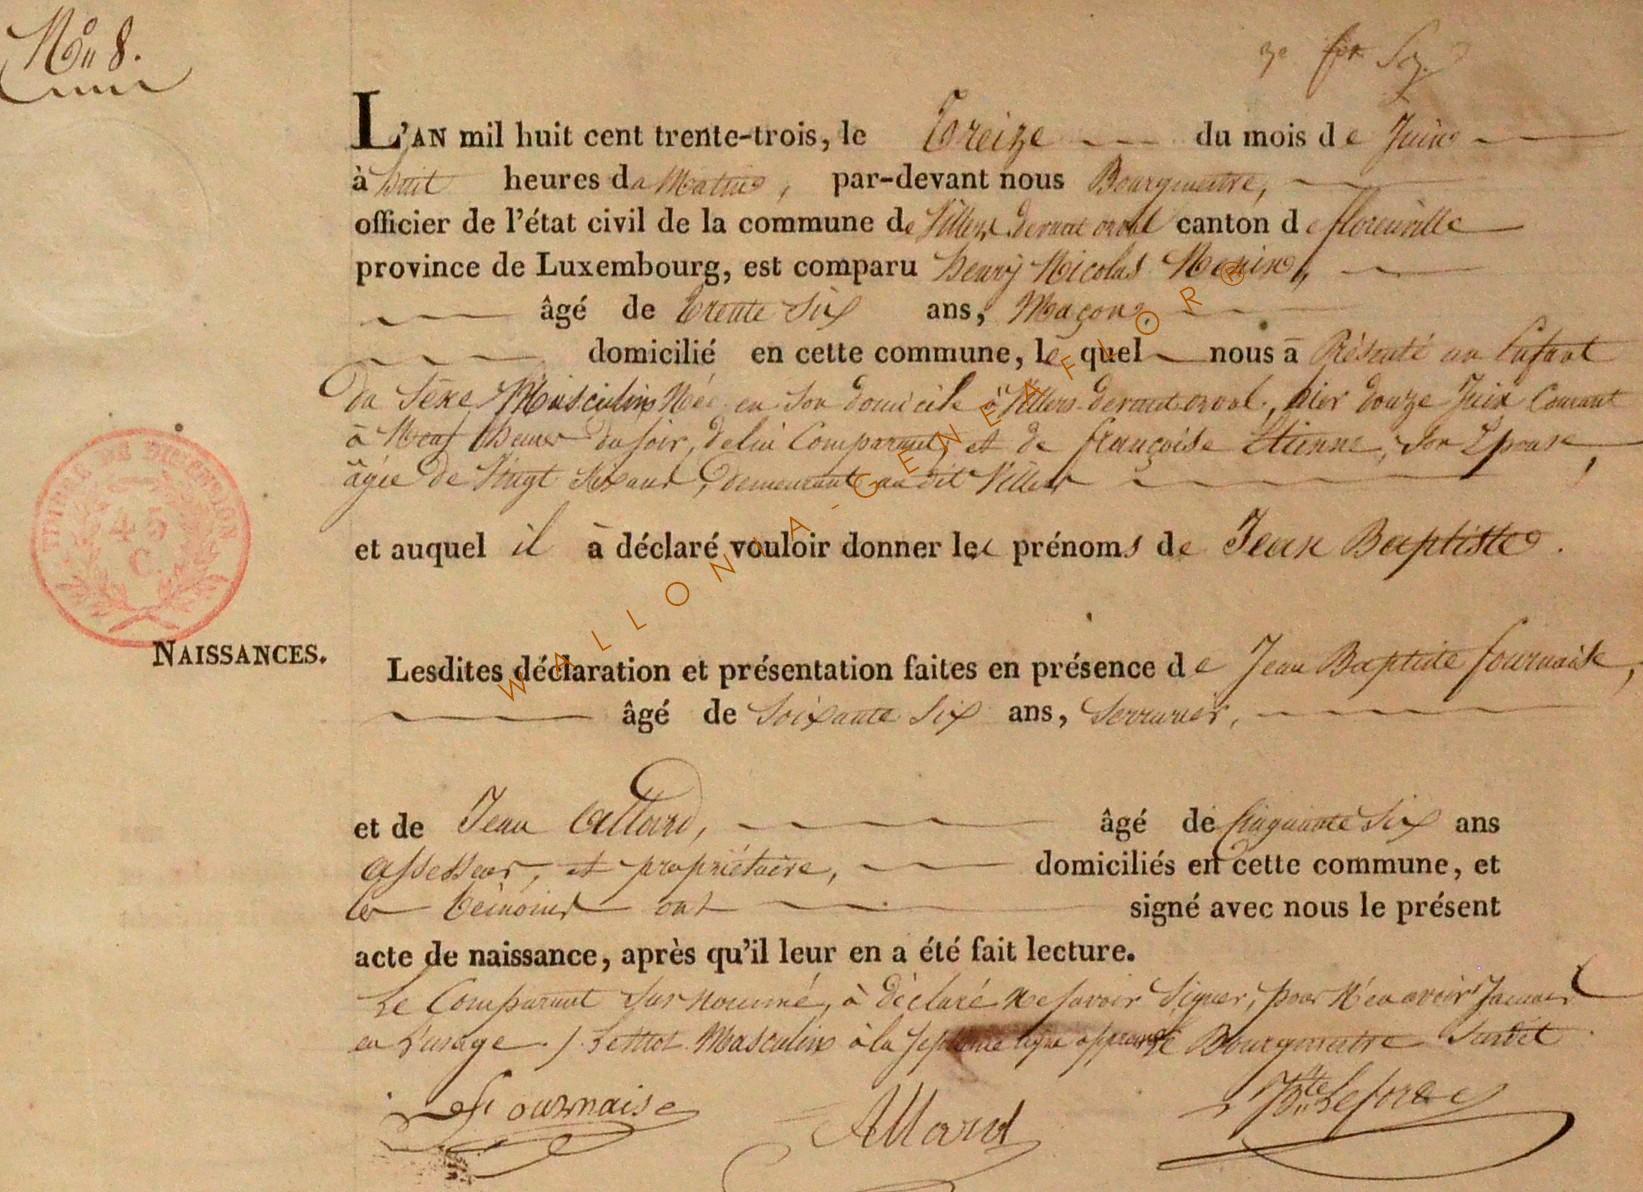 No 8.
L'AN mil huit cent trente-trois, le Treize du mois de Juin
à huit heures du Matin, par-devant nous Bourgmestre,
officier de l'état civil de la commune de Villers devant orval canton de florenville
province de Luxembourg, est comparu henry Nicolas Menin,
âgé de trente Six ans, Maçon
domicilié en cette commune, le quel nous à Présenté un Enfant
du Sexe Masculin Née en Son domicile à Villers devant orval, hier douze Juin Courant
à Neuf heures du soir, de lui Comparant et de françoise Etienne, Son Epouse,
âgée de Vingt Six ans, demeurant au dit Villers
et auquel il à déclaré vouloir donner les prénoms de Jean Baptiste.
45
C.
NAISSANCES.
Lesdites déclaration et présentation faites en présence de Jean Baptiste fournaise,
âgé de Soixante Six ans, Serrurier,
et de Jean Allard, âgé de Cinquante Six ans
assesseur, et propriétaire, domiciliés en cette commune, et
les témoins ont signé avec nous le présent
acte de naissance, après qu'il leur en a été fait lecture.
Le Comparant Sus nommé, à déclaré Ne savoir Signer, pour N'en avoir Jamais
eu L'usage. Le mot Masculin à la septieme ligne approuvé Bourgmestre Susdit
Fournaise
Allard
WALLONIA-GENEAFI.ORG